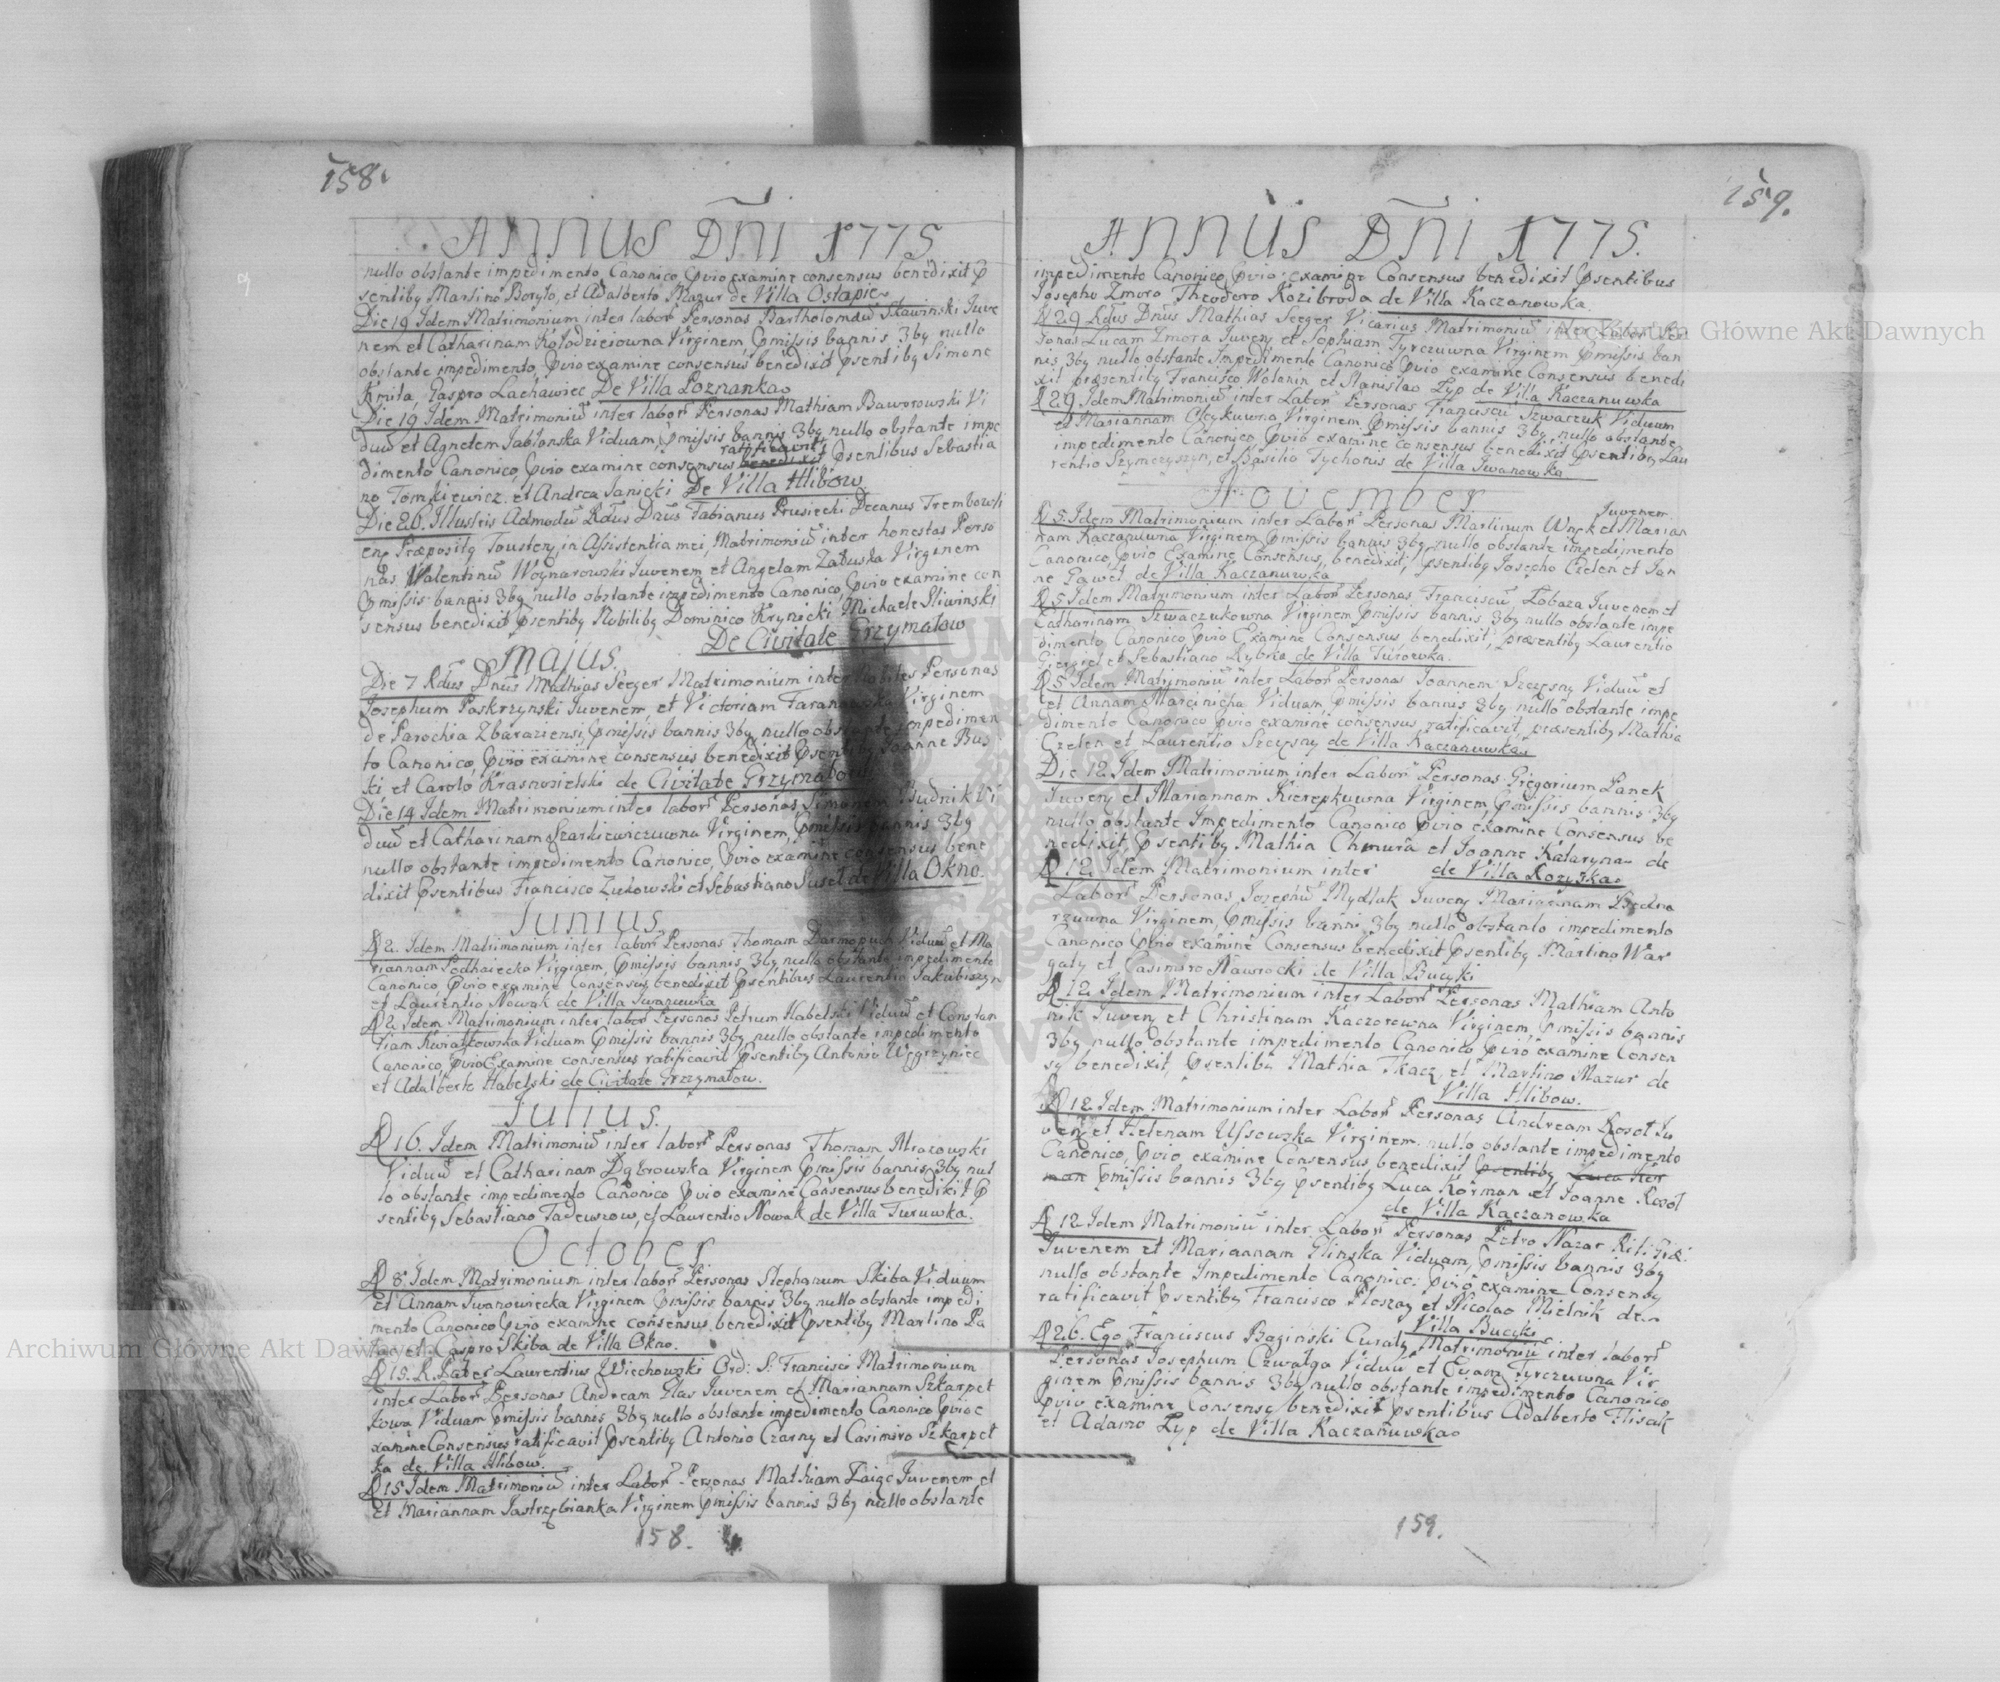 158.
ANNUS Dñi 1775.
nullo obstante impedimento Canonico, pvio examine consensus benedixit p
sentiby Martino Boryło, et Adalberto Mazur de Villa Ostapie
Die 19 Idem Matrimonium inter labor Personas Bartholomæũ Sławinski Juve
nem et Catharinam Kołodzieiowna Virginem, pmissis bannis 3by nullo
obstante impedimento, pvio examine consensus benedixit psentiby Simone
Kmita, Gaspro Lachawiec De Villa Poznanka
Die 19 Idem Matrimoniũ inter labor Personas Mathiam Baworowski Vi
duũ et Agnetem Jabłonska Viduam, pmissis bannis 3by nullo obstante impe
ratificavit
dimento Canonico, pvio examine consensus benedixit psentibus Sebastia
no Tomkiewicz, et Andrea Janicki De Villa Hlibow
Die 26. Illustris Admodũ Rdus Dnus Fabianus Prusiecki Decanus Trembowli
en, Præposity Tousten, in Assistentia mei, Matrimoniũ inter honestas Perso
nas Valentinũ Woynarowski Juvenem et Angelam Załuska Virginem
pmissis bannis 3by nullo obstante impedimento Canonico, pvio examine con
sensus benedixit psentiby Nobiliby Dominico Krynicki Michaele Sliwinski
De Civitate Grzymałow
Majus.
Die 7 Rdus Dnus Mathias Seeger Matrimonium inter Nobiles Personas
Josephum Paskrzynski Juvenem et Victoriam Virginem
de Parochia Zbaraziensi, pmissis bannis 3by nullo obstante impedimen
to Canonico, pvio examine consensus benedixit psentiby Joanne Bus
ki et Carolo Krasnosielski de Civitate Grzymałow
Die 14 Idem Matrimonium inter labor Personas Simonem Vi
duũ et Catharinam Szarkiewiczuwna Virginem, pmissis bannis 3by
nullo obstante impedimento Canonico, pvio examine consensus bene
dixit psentibus Francisco Zukowski et Sebastiano de Villa Okno.
Junius
D 2. Idem Matrimonium inter labor Personas Thomam Darmopuch Viduũ et Ma
riannam Podhaiecko Virginem, pmissis bannis 3by nullo obstante impedimento
Canonico, pvio examine Consensus benedixit psentibus Laurentio Jakubiszyn
et Laurentio Nowak de Villa Iwanuwka
D 2. Idem Matrimonium inter labor Personas Petrum Habelski Viduũ et Constan
tiam Kwiatkowska Viduam pmissis bannis 3by nullo obstante impedimento
Canonico, pvio Examine consensus ratificavit psentiby Antonio Węgrzyniec
et Adalberto Habelski de Civitate Grzymałow.
Julius.
D 16. Idem Matrimoniũ inter labor Personas Thomam Mrozowski
Viduũ et Catharinam Dąbrowska Virginem pmissis bannis 3by nul
lo obstante impedimento Canonico pvio examine Consensus benedixit p
sentiby Sebastiano Tadeuszow, et Laurentio Nowak de Villa Turuwka.
October
D 8. Idem Matrimonium inter labor Personas Stephanum Skiba Viduum
et Annam Iwanowiecka Virginem pmissis bannis 3by nullo obstante impedi
mento Canonico pvio examine consensus benedixit psentiby Martino Pa
et Caspro Skiba de Villa Okno.
D 15. R. Pater Laurentius Wiechowski Ord: S. Francisci Matrimonium
inter Labor Personas Andream Ilas Juvenem et Mariannam Szkarpet
kowa Viduam pmissis bannis 3by nullo obstante impedimento Canonico pvio e
xamine Consensus ratificavit psentiby Antonio Czarny et Casimiro Szkarpet
ka de Villa Hlibow.
D 15 Idem Matrimoniũ inter Labor Personas Mathiam Juvenem et
et Mariannam Jastrzębianka Virginem pmissis bannis 3by nullo obstante
158.
159.
ANNUS Dñi 1775.
impedimento Canonico pvio examine Consensus benedixit psentibus
Josepho Zmoro Theodoro Kozibroda de Villa Kaczanowka
D 29 Rdus Dnus Mathias Seeger Vicarius Matrimoniũ inter Labor Per
sonas Lucam Zmora Juven et Sophiam Tyrczuwna Virginem pmissis ban
nis 3by nullo obstante Impedimento Canonico pvio examine Consensus benedi
xit præsentiby Francisco Wołanin et Stanislao Zyp de Villa Kaczanuwka
D 29 Idem Matrimoniũ inter Labor Personas Franciscũ Szwaczuk Viduum
et Mariannam Virginem pmissis bannis 3by nullo obstante
impedimento Canonico pvio examine consensus benedixit psentiby Lau
rentio Szymczyszyn, et Basilio Tychonis de Villa Iwanowka
November
Juvenem
D 5. Idem Matrimonium inter Labor Personas Martinum Wnęk et Marian
nam Kaczanuwna Virginem pmissis bannis 3by nullo obstante impedimento
Canonico, pvio Examine Consensus, benedixit, psentiby Josepho Czelen et Jan
ne Paweł de Villa Kaczanuwka
D 5 Idem Matrimonium inter Labor Personas Franciscũ Łobaza Juvenem et
Catharinam Szwaczukowna Virginem pmissis bannis 3by nullo obstante impe
dimento Canonico pvio Examine Consensus benedixit, præsentiby Laurentio
et Sebastiano Rybka de Villa Turowka.
D 5 Idem Matrimoniũ inter Labor Personas Joannem Szczęsny Viduũ et
et Annam Marcinicha Viduam pmissis bannis 3by nullo obstante impe
dimento Canonico pvio examine consensus ratificavit, præsentiby Mathia
Czelen et Laurentio Szczęsny de Villa Kaczanuwka
Die 12 Idem Matrimonium inter Labor Personas Gregorium Panek
Juveny et Mariannam Kierepkuwna Virginem, pmissis bannis 3by
nullo obstante Impedimento Canonico pvio examine Consensus be
nedixit psentiby Mathia Chmura et Joanne Kataryna de
D 12. Idem Matrimonium inter de Villa Rozyska
Labor Personas Josephũ Mydlak Juveny Mariannam Bedna
rzuwna Virginem, pmissis bannis 3by nullo obstante impedimento
Canonico pvio examine Consensus benedixit psentiby Martino War
gaty et Casimiro Nawrocki de Villa Bucyki
D 12. Idem Matrimonium inter Labor Personas Mathiam Anto
nik Juveny et Christinam Kaczorowna Virginem, pmissis bannis
3by nullo obstante impedimento Canonico pvio examine Consen
sy benedixit, psentiby Mathia Tkacz et Martino Mazur de
Villa Hlibow.
D 12 Idem Matrimonium inter Labor Personas Andream Kosoł Ju
veny et Helenam Ussowska Virginem nullo obstante impedimento
Canonico, pvio examine Consensus benedixit psentiby Luca Kor
man pmissis bannis 3by psentiby Luca Korman et Joanne Kosoł
de Villa Kaczanowka
D 12 Idem Matrimoniũ inter Labor Personas Petro Nazar Riti
Juvenem et Mariannam Glinska Viduam, pmissis bannis 3by
nullo obstante Impedimento Canonico, pvio examine Consensy
ratificavit psentiby Francisco Płoszay et Nicolao Mielnik de
Villa Bucyki
D 26. Ego Franciscus Baginski Curaty Matrimoniũ inter labor
Personas Josephum Czwałga Viduũ et Evam Tyrczuwna Vir
ginem pmissis bannis 3by nullo obstante impedimento Canonico
pvio examine Consensy benedixit psentibus Adalberto Flisak
et Adamo Zyp de Villa Kaczanuwka
159.
Archiwum Główne Akt Dawnych
Archiwum Główne Akt Dawnych